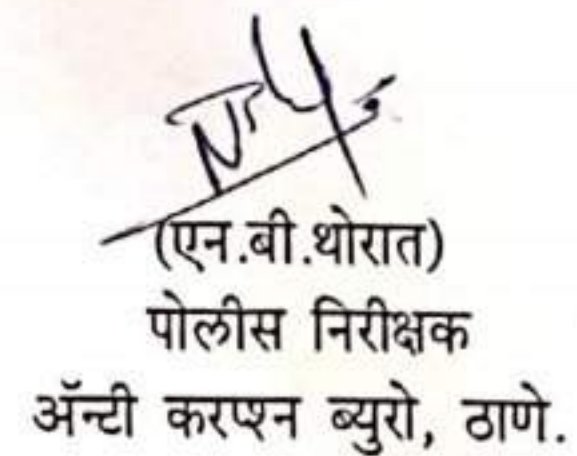 (एन.बी.थोरात)
पोलीस निरीक्षक
ॲन्टी करप्शन ब्युरो, ठाणे.